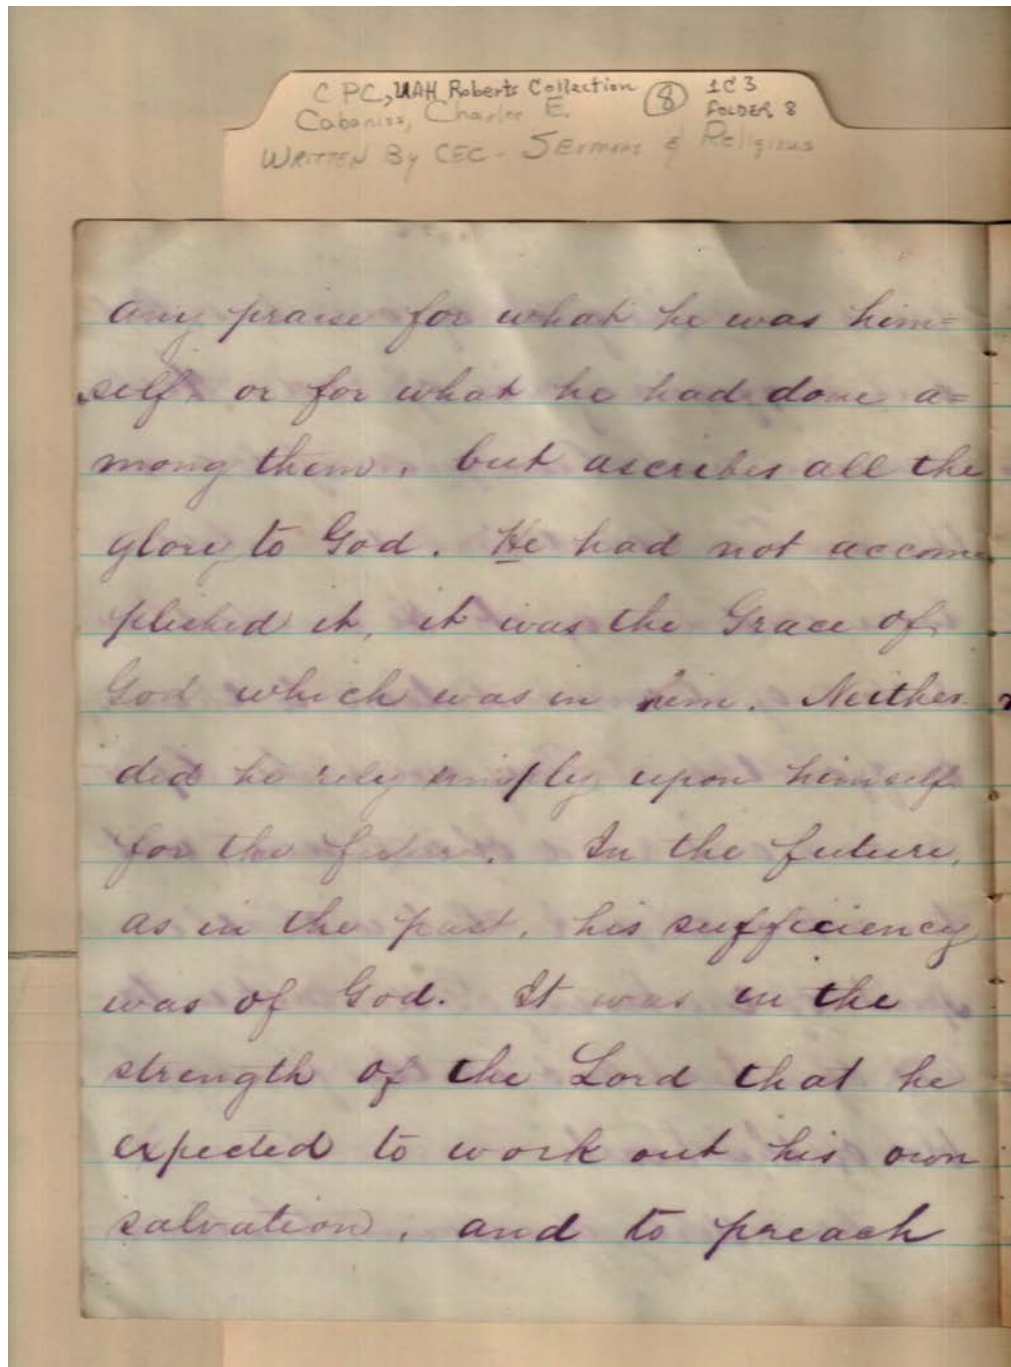 CPC, UAH Roberts Collection (8) 1C3
Cabaniss, Charles E. FOLDER 8
WRITTEN By CEC - SErmons & Religious
any praise for what he was him=
self, or for what he had done a=
mong them, but ascribes all the
glory to God. He had not accom
plished it, it was the Grace of
God which was in him. Neither
did he rely simply upon himself
for the future. In the future,
as in the past, his sufficiency
was of God. It was in the
strength of the Lord that he
expected to work out his own
salvation, and to preach